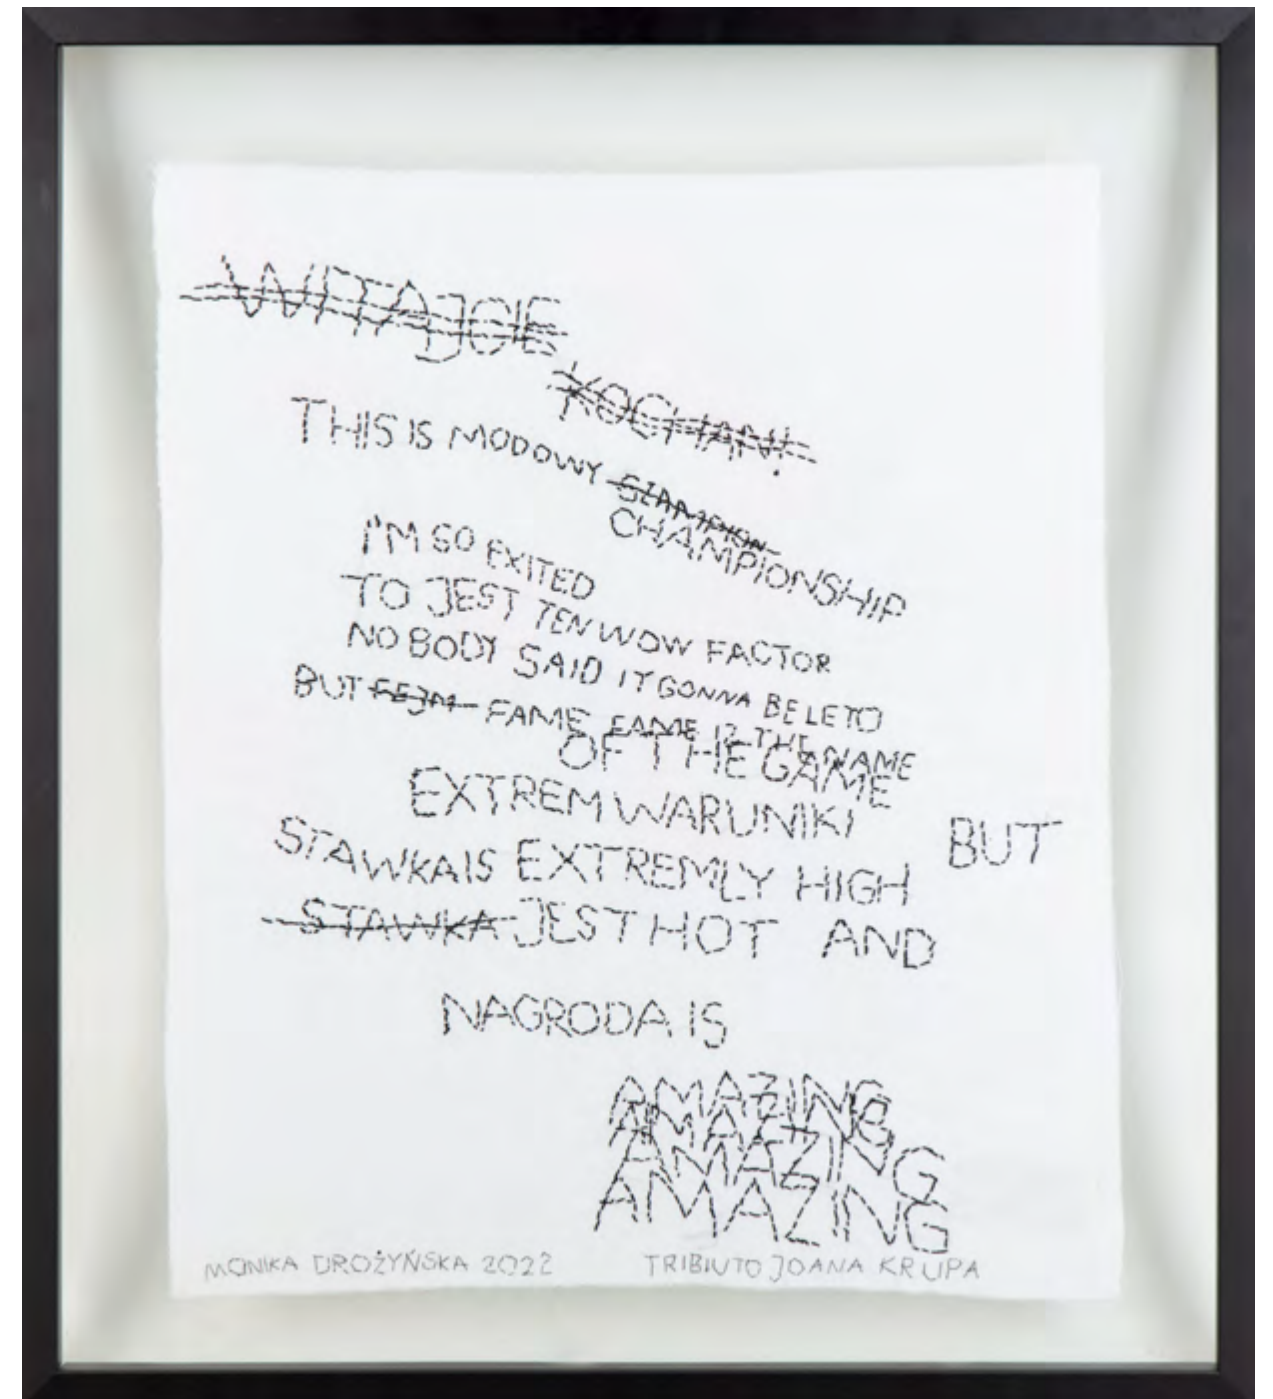 WITAJCIE
KOCHANI!
THIS IS MODOWY SZAMPION
CHAMPIONSHIP
I'M SO EXITED
TO JEST TEN WOW FACTOR
NO BODY SAID IT GONNA BE LETO
BUT FEJM FAME FAME IS THE NAME
OF THE GAME
EXTREM WARUNIKI BUT
STAWKA IS EXTREMLY HIGH
STAWKA JEST HOT AND
NAGRODA IS
AMAZING
AMAZING
AMAZING
AMAZING
MONIKA DROŻYŃSKA 2022 TRIBIUTO JOANA KRUPA